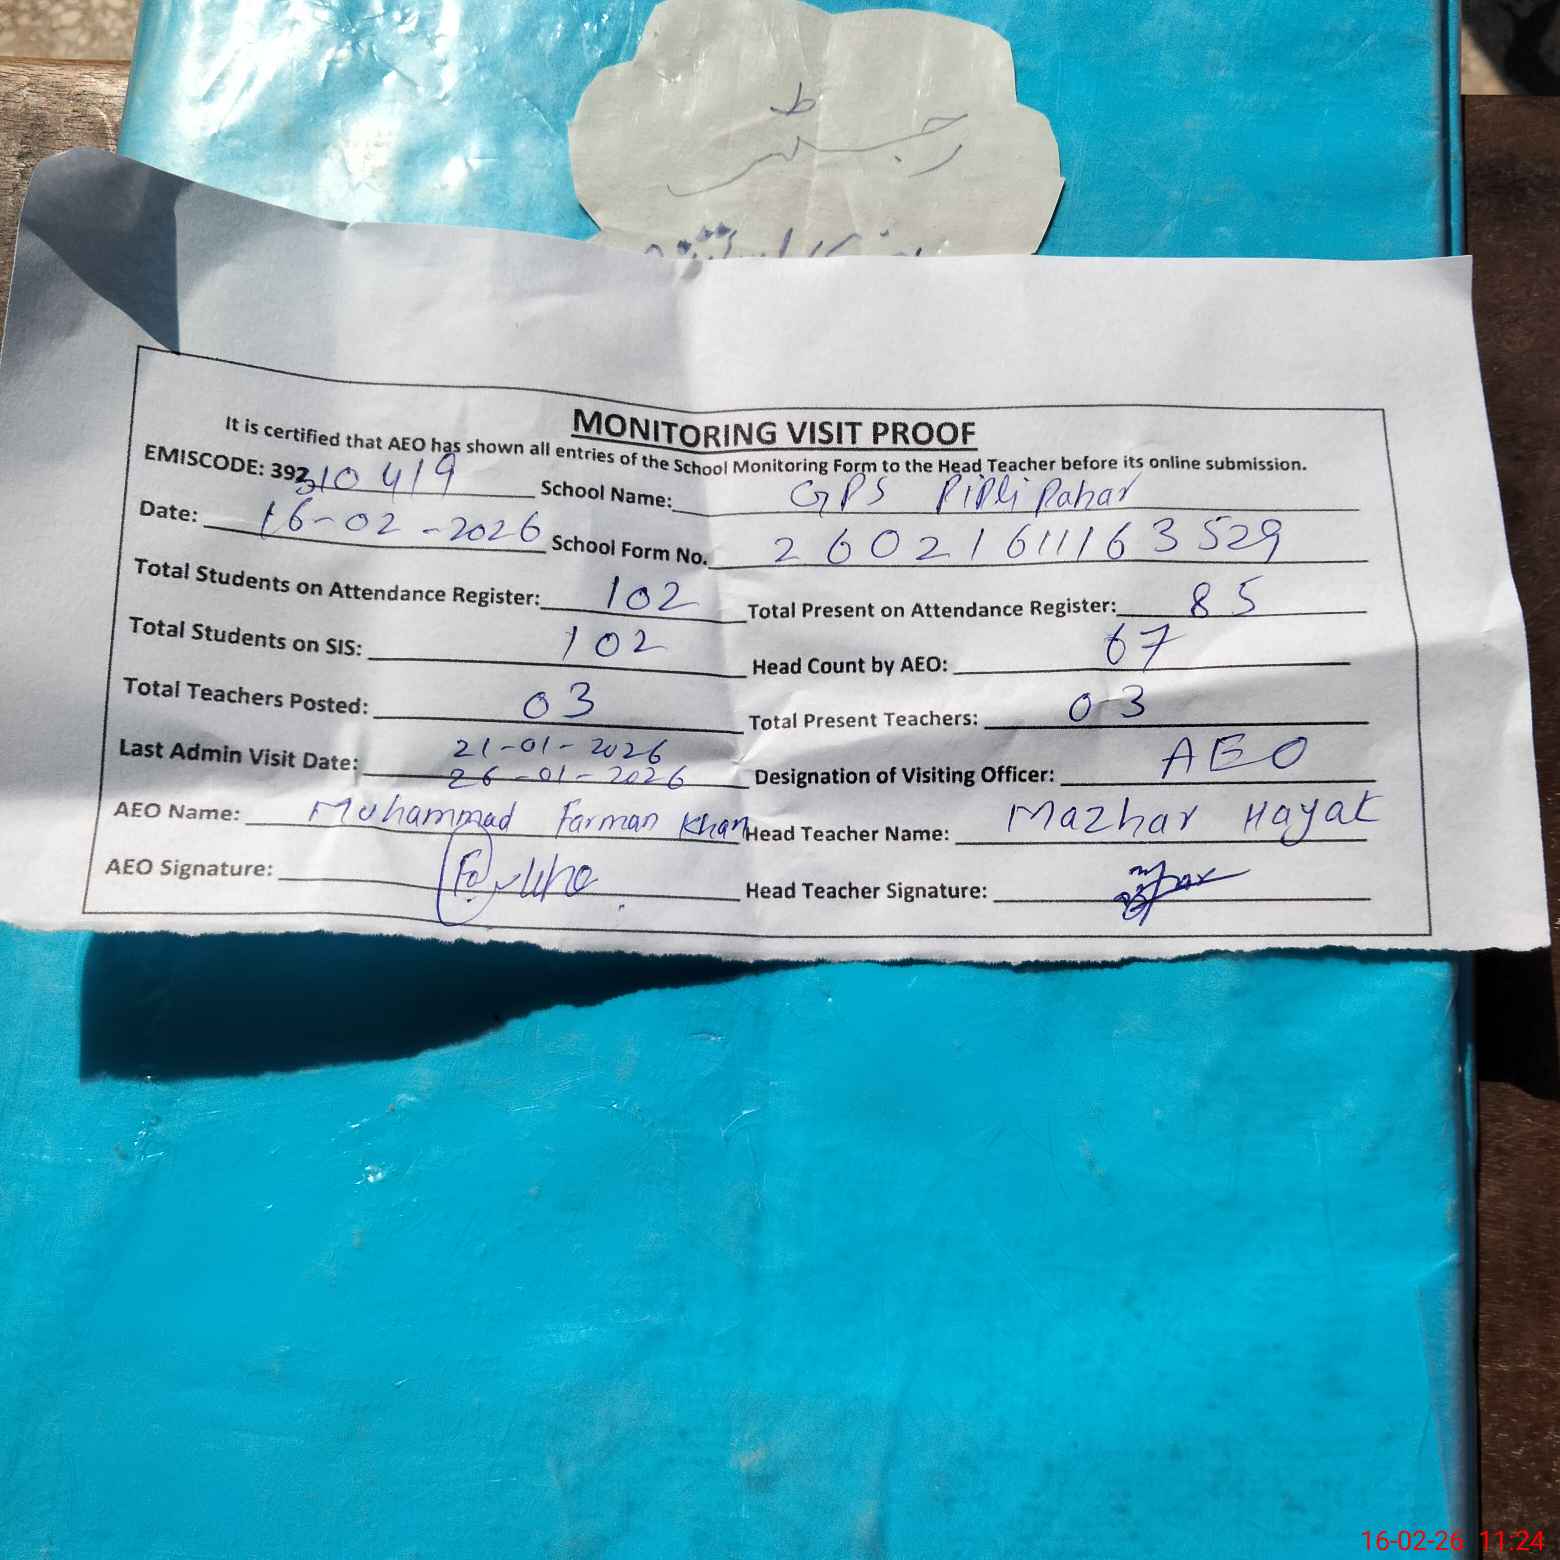 رجسٹر
MONITORING VISIT PROOF
It is certified that AEO has shown all entries of the School Monitoring Form to the Head Teacher before its online submission.
EMISCODE: 39310419 School Name: GPS Pipli Pahar
Date: 16-02-2026 School Form No. 2602161116 3529
Total Students on Attendance Register: 102 Total Present on Attendance Register: 85
Total Students on SIS: 102 Head Count by AEO: 67
Total Teachers Posted: 03 Total Present Teachers: 03
Last Admin Visit Date: 21-01-2026 26-01-2026 Designation of Visiting Officer: AEO
AEO Name: Muhammad Farman Khan Head Teacher Name: Mazhar Hayat
AEO Signature: Head Teacher Signature:
16-02-26 11:24